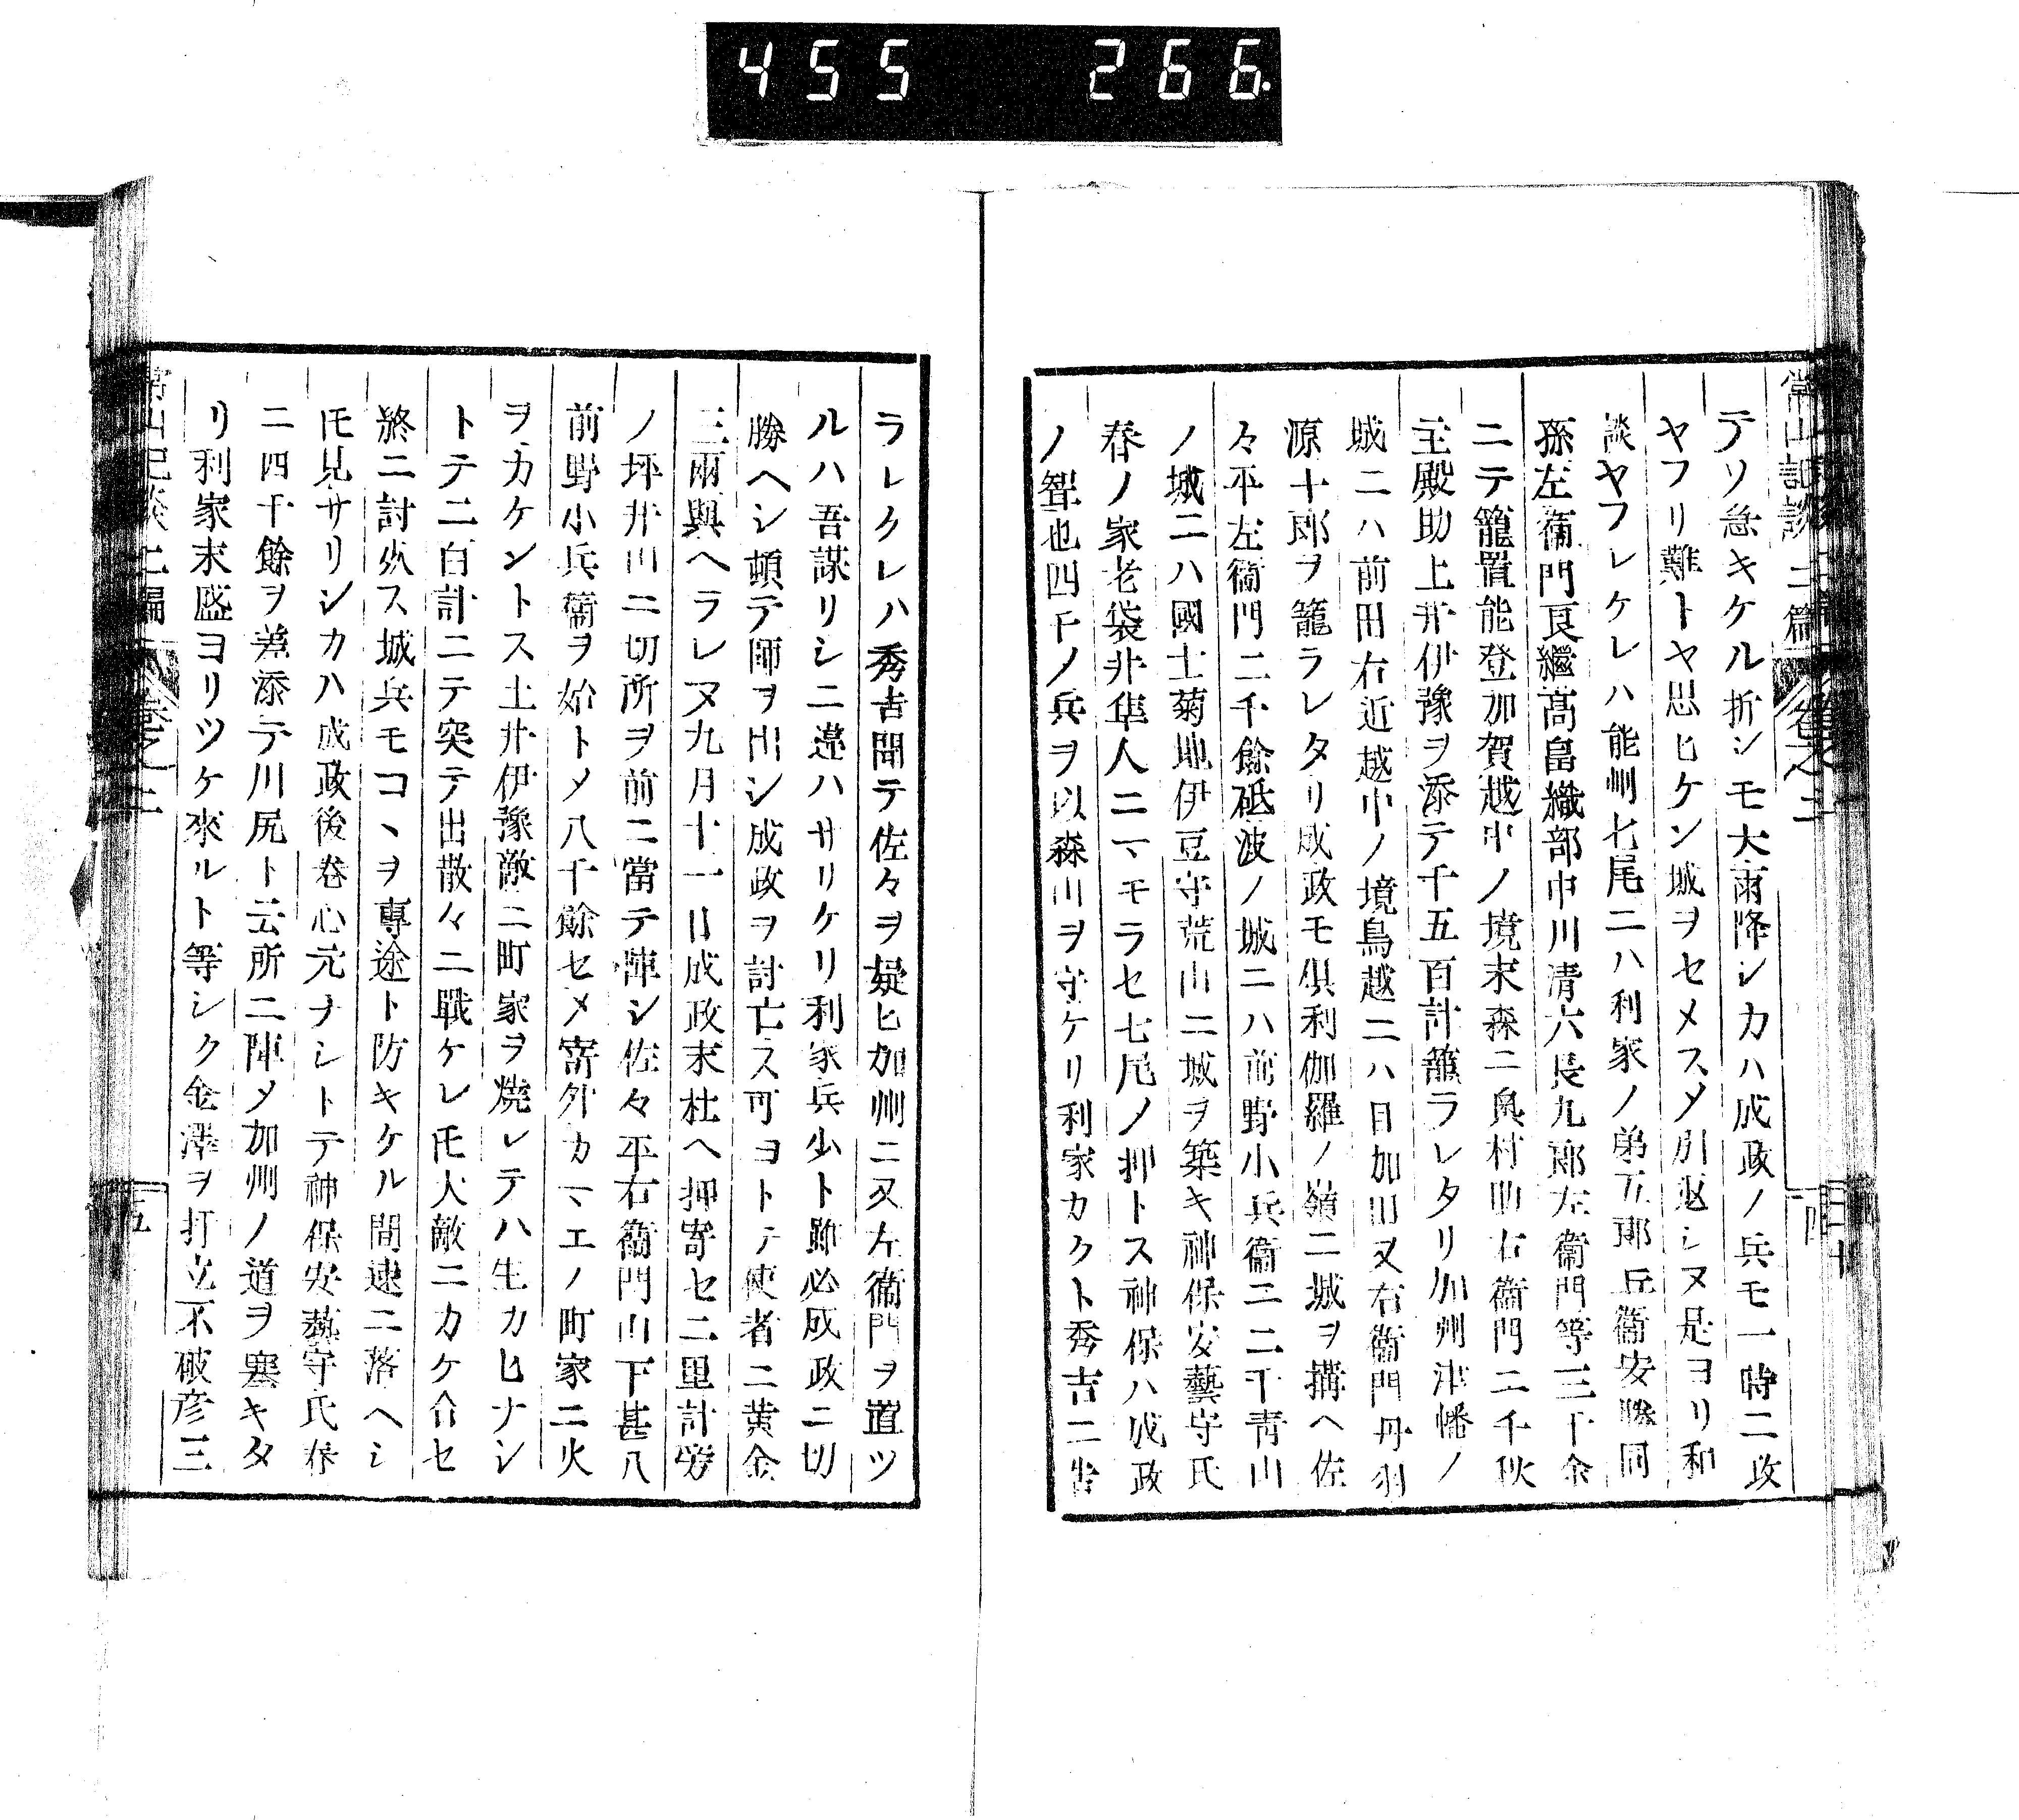 455 266
常山記談 二篇 卷之二 十四
テソ急キケル折シモ大雨降シカハ成政ノ兵モ一時ニ攻
ヤフリ難トヤ思ヒケン城ヲセメスメ引返シヌ是ヨリ和
談ヤフレケレハ能州七尾ニハ利家ノ弟五郎兵衞安勝同
孫左衞門良繼髙畠織部中川清六長九郎左衞門等三千余
ニテ籠置能登加賀越中ノ境末森ニ奥村助右衞門ニ千秋
主殿助土井伊豫ヲ添テ千五百計籠ラレタリ加州津幡ノ
城ニハ前田右近越中ノ境鳥越ニハ目加田又右衞門丹羽
源十郎ヲ籠ラレタリ成政モ倶利伽羅ノ嶺ニ城ヲ搆ヘ佐
々平左衞門二千餘砥波ノ城ニハ前野小兵衞ニ二千靑山
ノ城ニハ國士菊地伊豆守荒山ニ城ヲ築キ神保安藝守氏
春ノ家老袋井隼人ニマモラセ七尾ノ押トス神保ハ成政
ノ聟也四千ノ兵ヲ以森川ヲ守ケリ利家カクト秀吉ニ告
ラレケレハ秀吉聞テ佐々ヲ疑ヒ加州ニ又左衞門ヲ置ツ
ルハ吾謀リシニ違ハサリケリ利家兵少ト雖必成政ニ切
勝ヘシ頓テ師ヲ出シ成政ヲ討亡ス可ヨトテ使者ニ黄金
三兩與ヘラレヌ九月十一日成政末杜ヘ押寄セ二里計旁
ノ坪井川ニ切所ヲ前ニ當テ陣シ佐々平右衞門山下甚八
前野小兵衞ヲ始トメ八千餘セメ寄外カマエノ町家ニ火
ヲカケントス土井伊豫敵ニ町家ヲ燒レテハ生カヒナシ
トテ二百計ニテ突テ出散々ニ戰ケレ𪜈大敵ニカケ合セ
終ニ討死ス城兵モコヽヲ專途ト防キケル間速ニ落ヘシ
𪜈見サリシカハ成政後卷心元ナシトテ神保安藝守氏春
ニ四千餘ヲ差添テ川尻ト云所ニ陣メ加州ノ道ヲ塞キタ
リ利家末盛ヨリツケ來ルト等シク金澤ヲ打立不破彦三
常山記談 二編 卷之二 十五